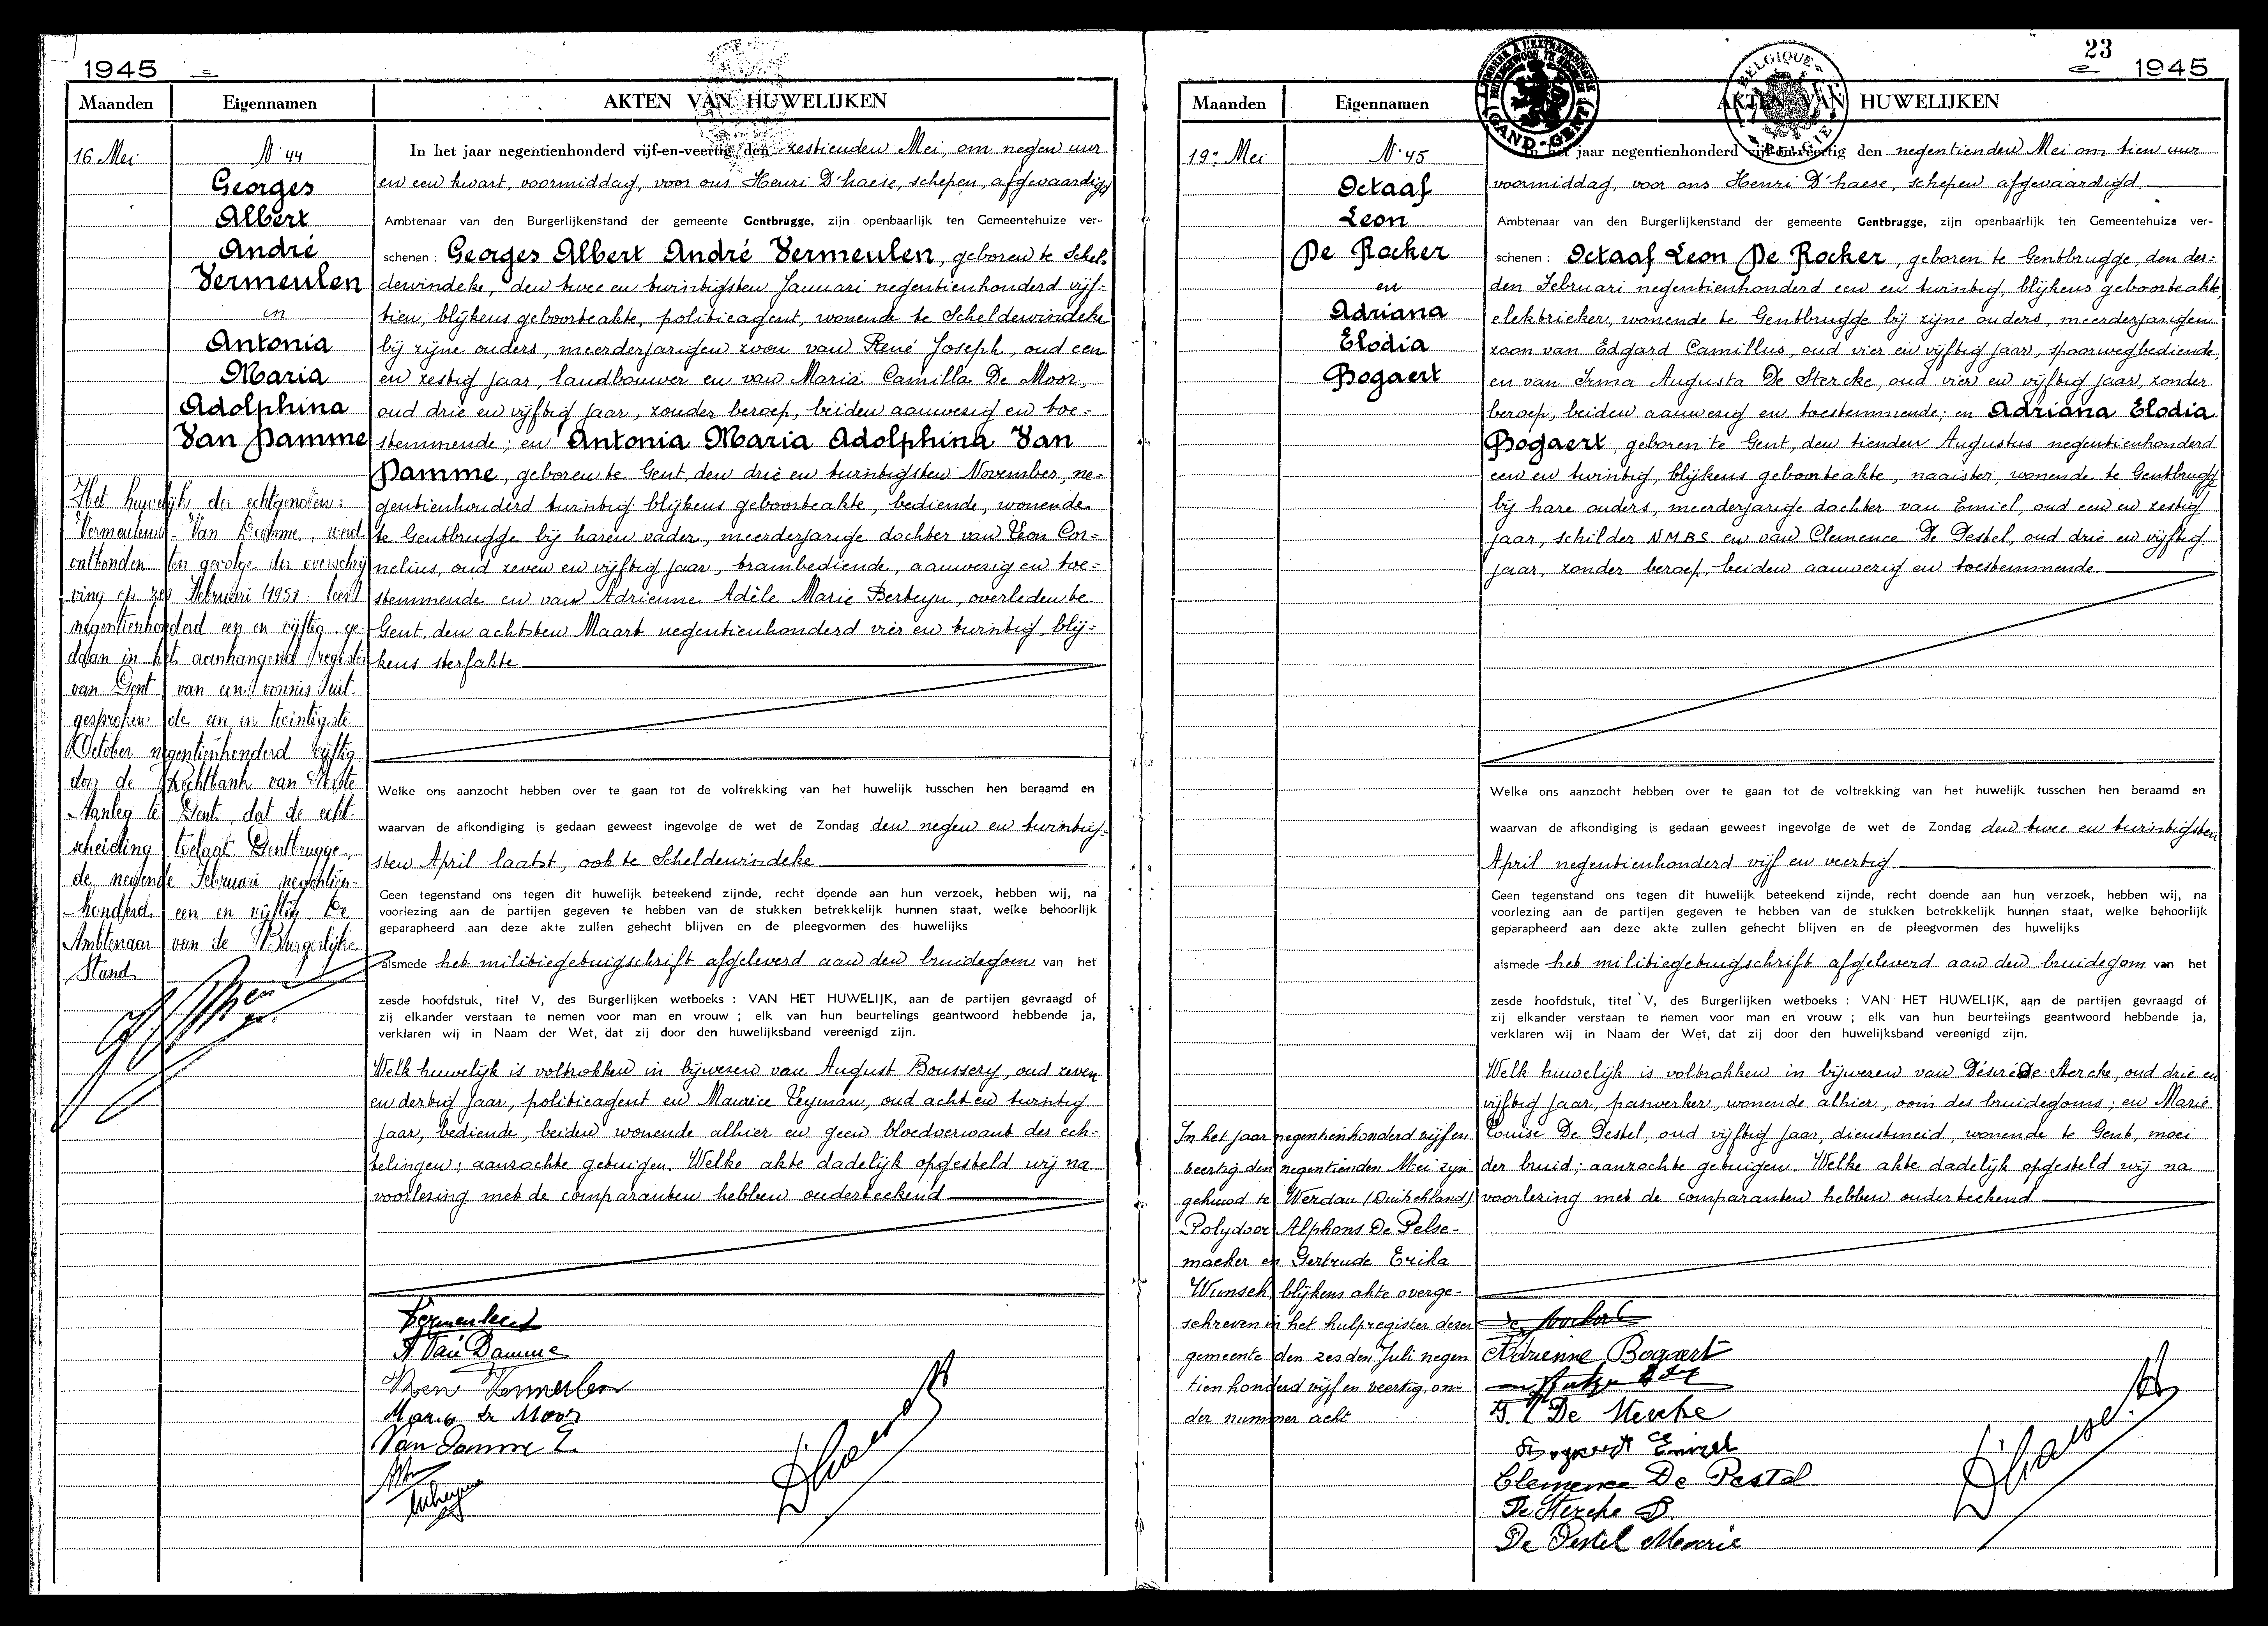 1945
Maanden Eigennamen AKTEN VAN HUWELIJKEN
16 Mei
N. 44
Georges
Albert
André
Vermeulen
en
Antonia
Maria
Adolphina
Van Damme
Het huwelijk der echtgenoten:
Vermeulen - Van Damme, werd
ontbonden ten gevolge der overschrij
ving op zes Februari (1951
negentienhonderd een en vijftig, ge-
daan in het aanhangend register
van Gent van een vonnis uit-
gesproken de een en twintigste
October negentienhonderd vijftig
door de Rechtbank van Eerste
Aanleg te Gent, dat de echt-
scheiding toelaat. Gentbrugge,
de negende Februari negentien-
honderd een en vijftig. De
Ambtenaar van de Burgerlijke
Stand
In het jaar negentienhonderd vijf-en-veertig den zestienden Mei, om negen uur
en een kwart, voormiddag, voor ons Henri D'haese, schepen, afgevaardigd
Ambtenaar van den Burgerlijkenstand der gemeente Gentbrugge, zijn openbaarlijk ten Gemeentehuize ver-
schenen : Georges Albert André Vermeulen, geboren te Schel-
dewindeke, den twee en twintigsten Januari negentienhonderd vijf-
tien, blijkens geboorteakte, politieagent, wonende te Scheldewindeke
bij zijne ouders, meerderjarigen zoon van René Joseph, oud een
en zestig jaar, landbouwer en van Maria Camilla De Moor,
oud drie en vijftig jaar, zonder beroep, beiden aanwezig en toe=
stemmende; en Antonia Maria Adolphina Van
Damme, geboren te Gent, den drie en twintigsten November, ne=
gentienhonderd twintig blijkens geboorteakte, bediende, wonende
te Gentbrugge bij haren vader, meerderjarige dochter van Leon Cor=
nelius, oud zeven en vijftig jaar, trambediende, aanwezig en toe=
stemmende en van Adrienne Adèle Marie Berteyn, overleden te
Gent, den achtsten Maart negentienhonderd vier en twintig, blij=
kens sterfakte
Welke ons aanzocht hebben over te gaan tot de voltrekking van het huwelijk tusschen hen beraamd en
waarvan de afkondiging is gedaan geweest ingevolge de wet de Zondag den negen en twintig-
sten April laatst, ook te Scheldewindeke
Geen tegenstand ons tegen dit huwelijk beteekend zijnde, recht doende aan hun verzoek, hebben wij, na
voorlezing aan de partijen gegeven te hebben van de stukken betrekkelijk hunnen staat, welke behoorlijk
geparapheerd aan deze akte zullen gehecht blijven en de pleegvormen des huwelijks
alsmede het militiegetuigschrift afgeleverd aan den bruidegom van het
zesde hoofdstuk, titel V, des Burgerlijken wetboeks : VAN HET HUWELIJK, aan de partijen gevraagd of
zij elkander verstaan te nemen voor man en vrouw ; elk van hun beurtelings geantwoord hebbende ja,
verklaren wij in Naam der Wet, dat zij door den huwelijksband vereenigd zijn.
Welk huwelijk is voltrokken in bijwezen van August Boussery, oud zeven
en dertig jaar, politieagent en Maurice Leyman, oud acht en twintig
jaar, bediende, beiden wonende alhier en geen bloedverwant des ech-
telingen; aanzochte getuigen. Welke akte dadelijk opgesteld wij na
voorlezing met de comparanten hebben onderteekend
Vermeulen
A. Van Damme
Vermeulen
Maria De Moor
Van Damme L.
D'haese
23
1945
Maanden Eigennamen AKTEN VAN HUWELIJKEN
GAND-GENT
BELGIQUE
BELGIE
19n Mei
N. 45
Octaaf
Leon
De Rocker
en
Adriana
Elodia
Bogaert
In het jaar negentienhonderd vijf en
veertig den negentienden Mei zijn
gehuwd te Werdau (Duitschland)
Polydoor Alphons De Pelse-
maeker en Gertrude Erika
Wunsch, blijkens akte overge-
schreven in het hulpregister dezer
gemeente den zesden Juli negen
tien honderd vijf en veertig, on-
der nummer acht
In het jaar negentienhonderd vijf-en-veertig den negentienden Mei om tien uur
voormiddag, voor ons Henri D'haese, schepen afgevaardigd
Ambtenaar van den Burgerlijkenstand der gemeente Gentbrugge, zijn openbaarlijk ten Gemeentehuize ver-
schenen : Octaaf Leon De Rocker, geboren te Gentbrugge, den der=
den Februari negentienhonderd een en twintig, blijkens geboorteakte,
elektrieker, wonende te Gentbrugge bij zijne ouders, meerderjarigen
zoon van Edgard Camillus, oud vier en vijftig jaar, spoorwegbediende,
en van Irma Augusta De Stercke, oud vier en vijftig jaar, zonder
beroep, beiden aanwezig en toestemmende; en Adriana Elodia
Bogaert, geboren te Gent, den tienden Augustus negentienhonderd
een en twintig, blijkens geboorteakte, naaister, wonende te Gentbrugge
bij hare ouders, meerderjarige dochter van Emiel, oud een en zestig
jaar, schilder NMBS en van Clemence De Pestel, oud drie en vijftig
jaar, zonder beroep, beiden aanwezig en toestemmende
Welke ons aanzocht hebben over te gaan tot de voltrekking van het huwelijk tusschen hen beraamd en
waarvan de afkondiging is gedaan geweest ingevolge de wet de Zondag den twee en twintigsten
April negentienhonderd vijf en veertig
Geen tegenstand ons tegen dit huwelijk beteekend zijnde, recht doende aan hun verzoek, hebben wij, na
voorlezing aan de partijen gegeven te hebben van de stukken betrekkelijk hunnen staat, welke behoorlijk
geparapheerd aan deze akte zullen gehecht blijven en de pleegvormen des huwelijks
alsmede het militiegetuigschrift afgeleverd aan den bruidegom van het
zesde hoofdstuk, titel V, des Burgerlijken wetboeks : VAN HET HUWELIJK, aan de partijen gevraagd of
zij elkander verstaan te nemen voor man en vrouw ; elk van hun beurtelings geantwoord hebbende ja,
verklaren wij in Naam der Wet, dat zij door den huwelijksband vereenigd zijn.
Welk huwelijk is voltrokken in bijwezen van Désiré De Stercke, oud drie en
vijftig jaar, paswerker, wonende alhier, oom des bruidegoms; en Marie
Louise De Pestel, oud vijftig jaar, dienstmeid, wonende te Gent, moei
der bruid; aanzochte getuigen. Welke akte dadelijk opgesteld wij na
voorlezing met de comparanten hebben onderteekend
Adrienne Bogaert
De Stercke
Bogaert Emiel
Clemence De Pestel
De Stercke D.
De Pestel Marie
D'haese